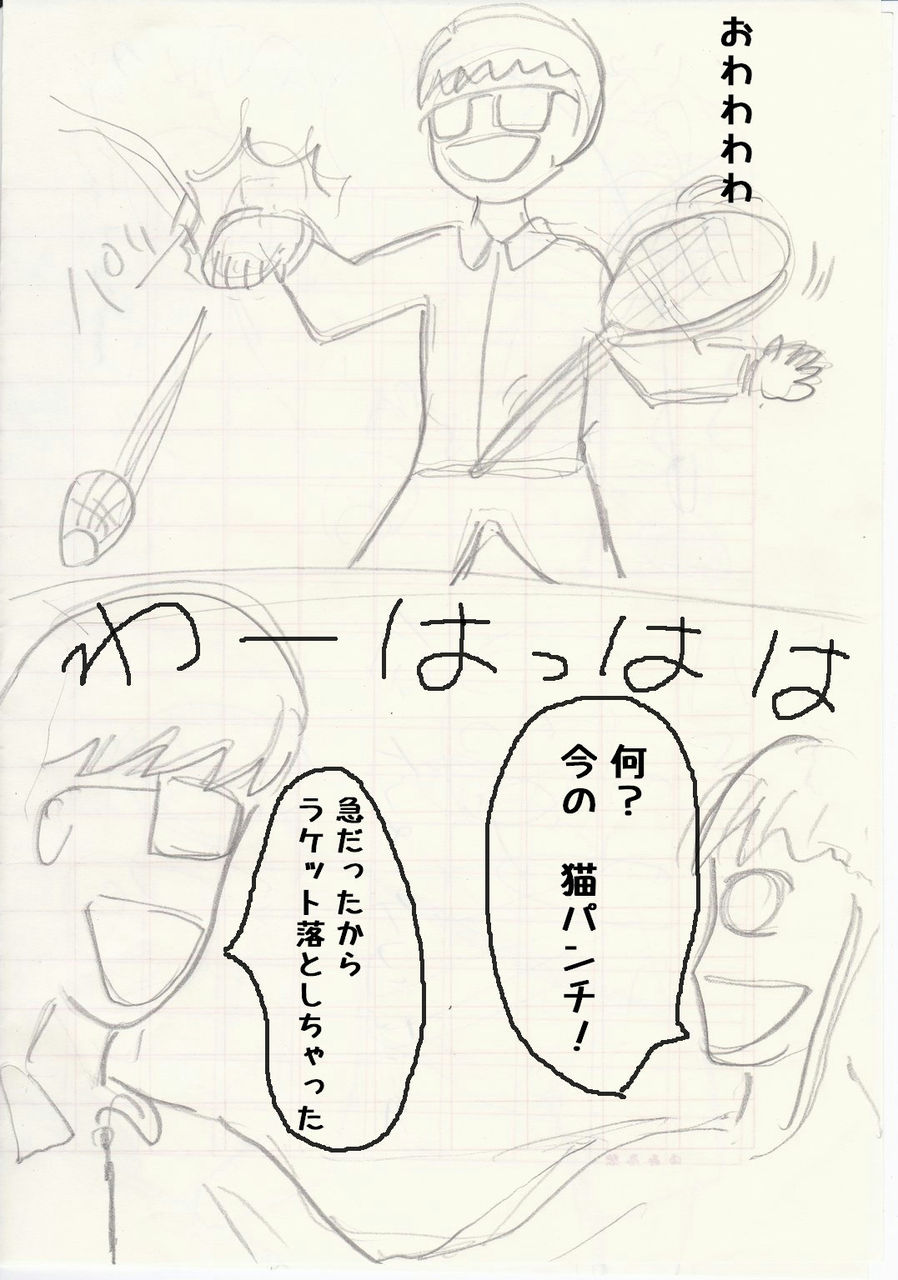 おわわわわ
パシ
わーはっはは
何?
今の 猫パンチ!
急だったから
ラケット落としちゃった